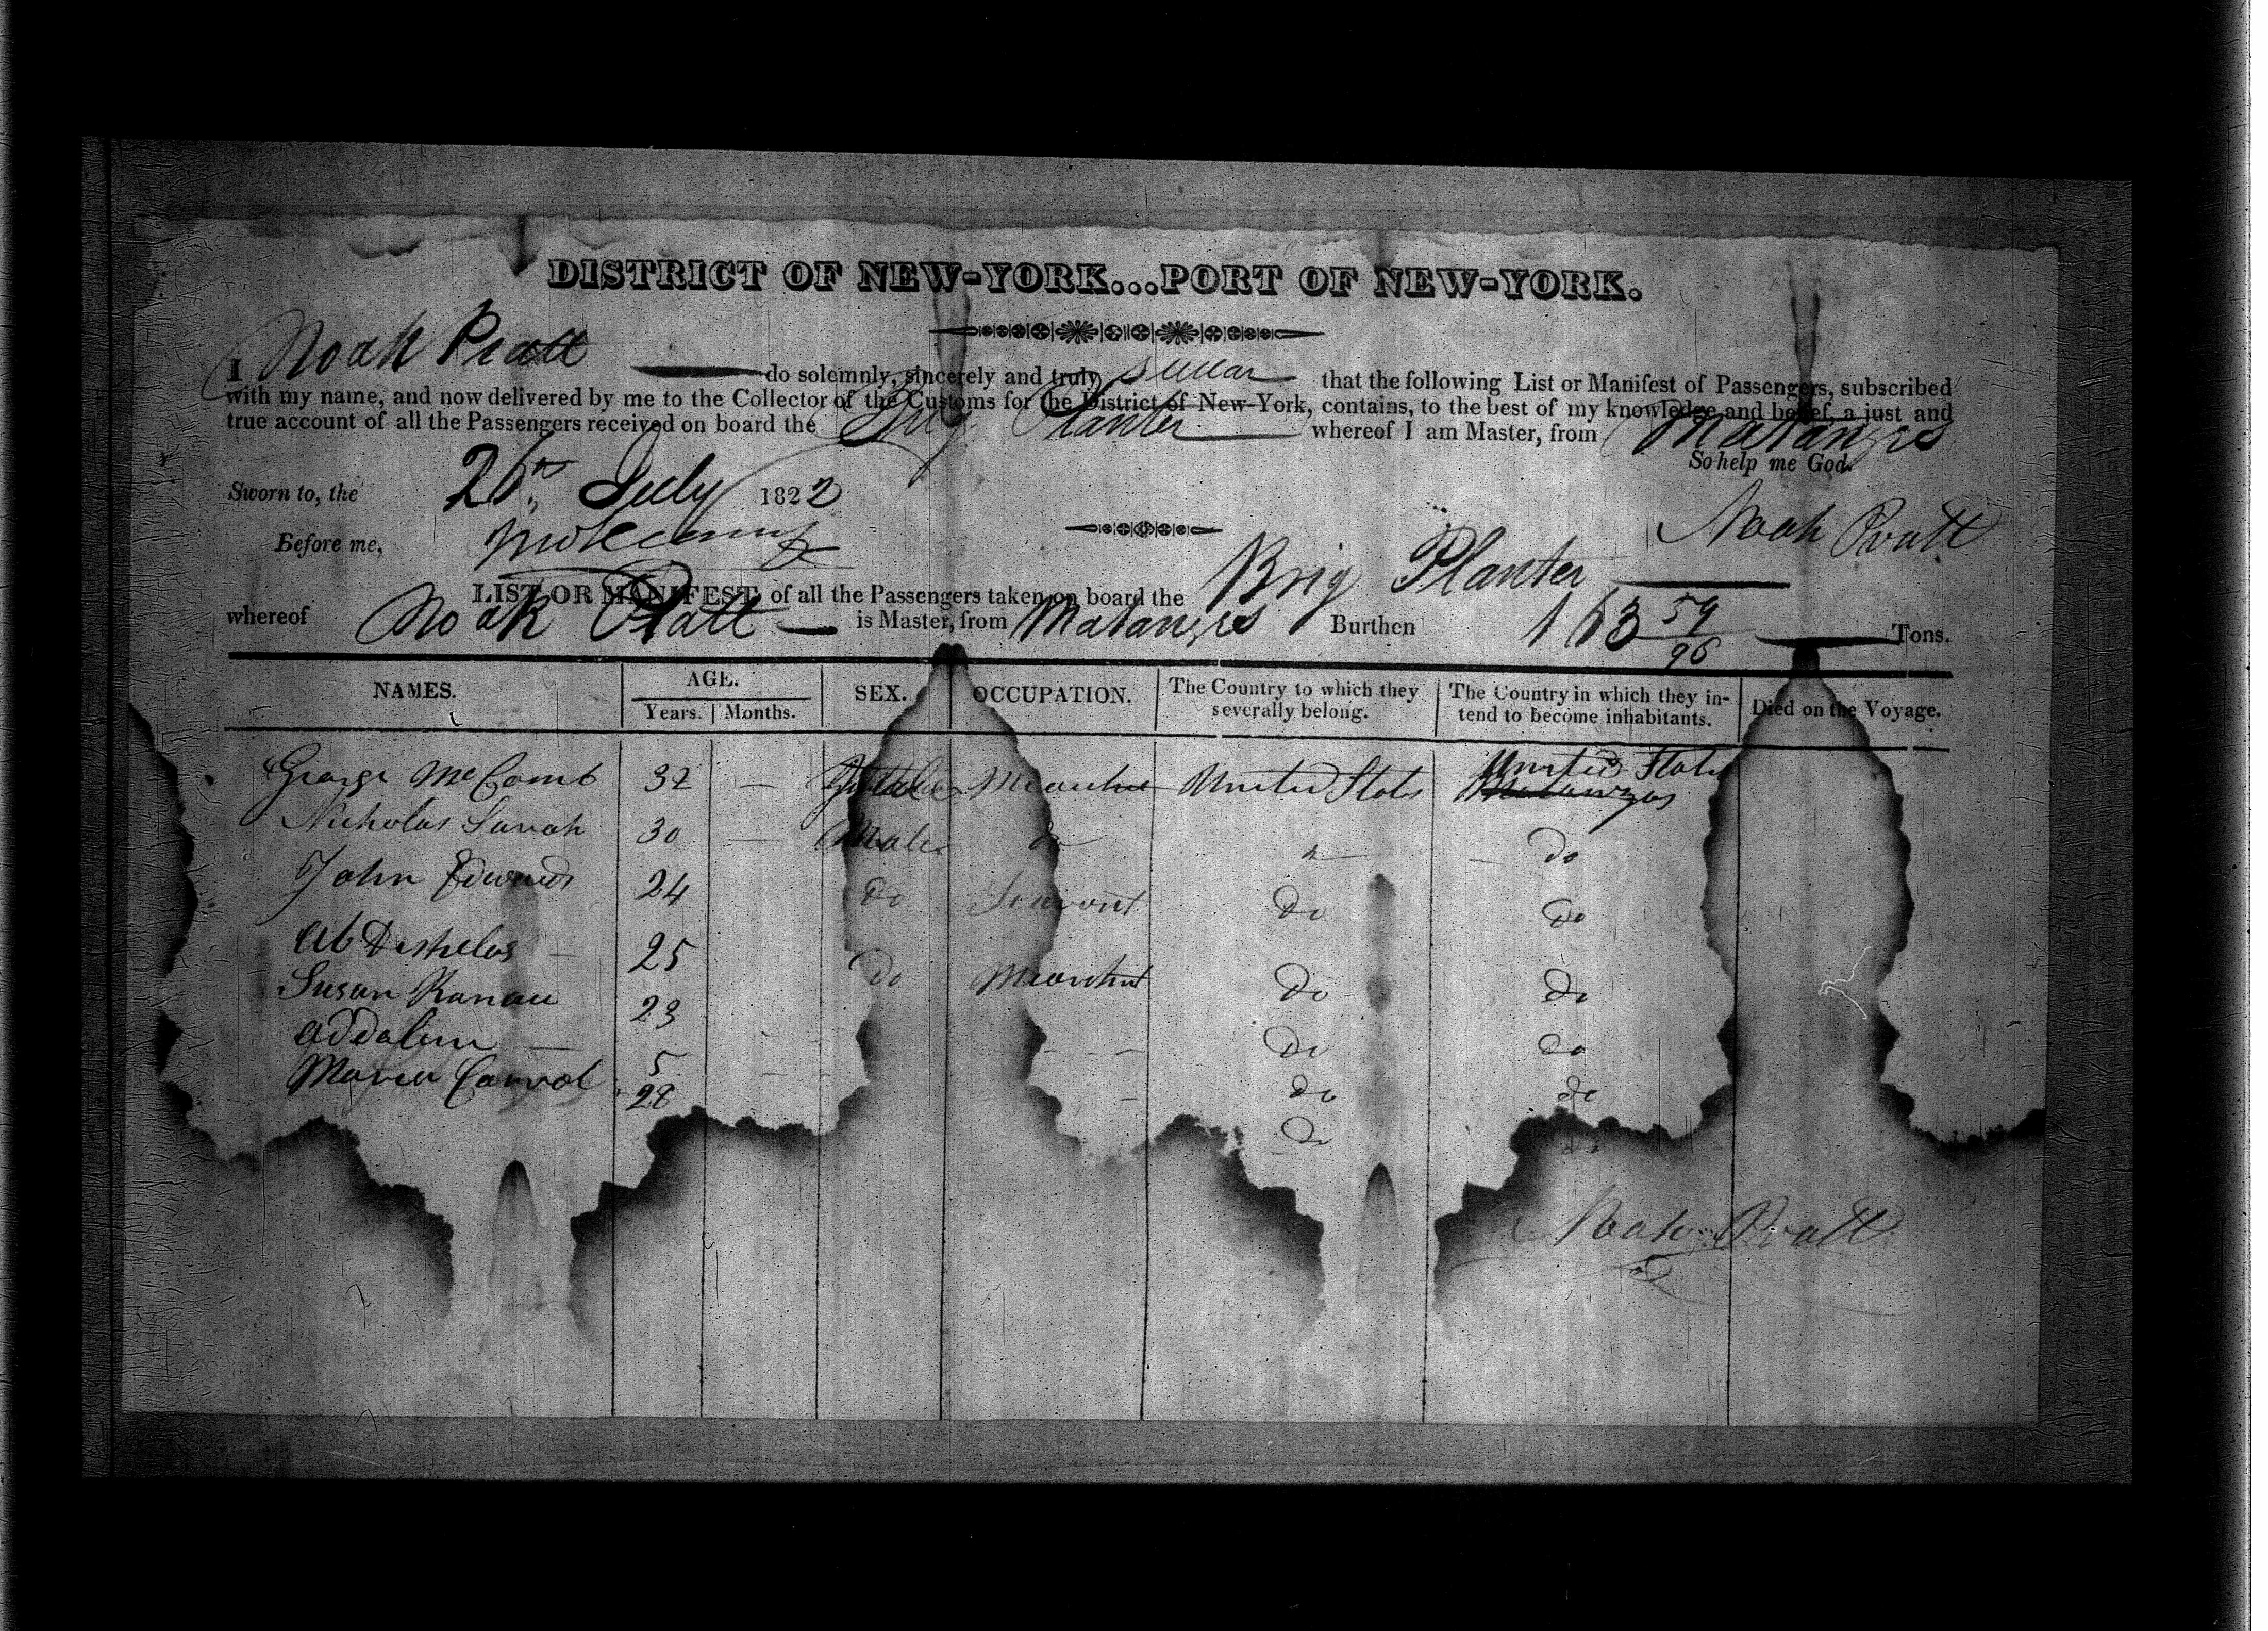 DISTRICT OF NEW-YORK...PORT OF NEW-YORK.
I Noah Pratt do solemnly, sincerely and truly swear that the following List or Manifest of Passengers, subscribed
with my name, and now delivered by me to the Collector of the Customs for the District of New-York, contains, to the best of my knowledge and belief, a just and
true account of all the Passengers received on board the Brig Planter whereof I am Master, from Matanzes
So help me God.
Sworn to, the July 1822
Noah Pratt
Before me,
LIST OR MANIFEST of all the Passengers taken on board the Brig Planter
whereof Noah Pratt is Master, from Matanzes Burthen 163 59/95 Tons.
NAMES. AGE. Years. Months. SEX. OCCUPATION. The Country to which they severally belong. The Country in which they intend to become inhabitants. Died on the Voyage.
George McComb 32 — United States United States
Nicholas 30 — Male do do
John Edwards 24 do Do Do
25 Do Do Do
Susan 23 Do do
5 do do
Maria Carrol 28 Do
Noah Pratt